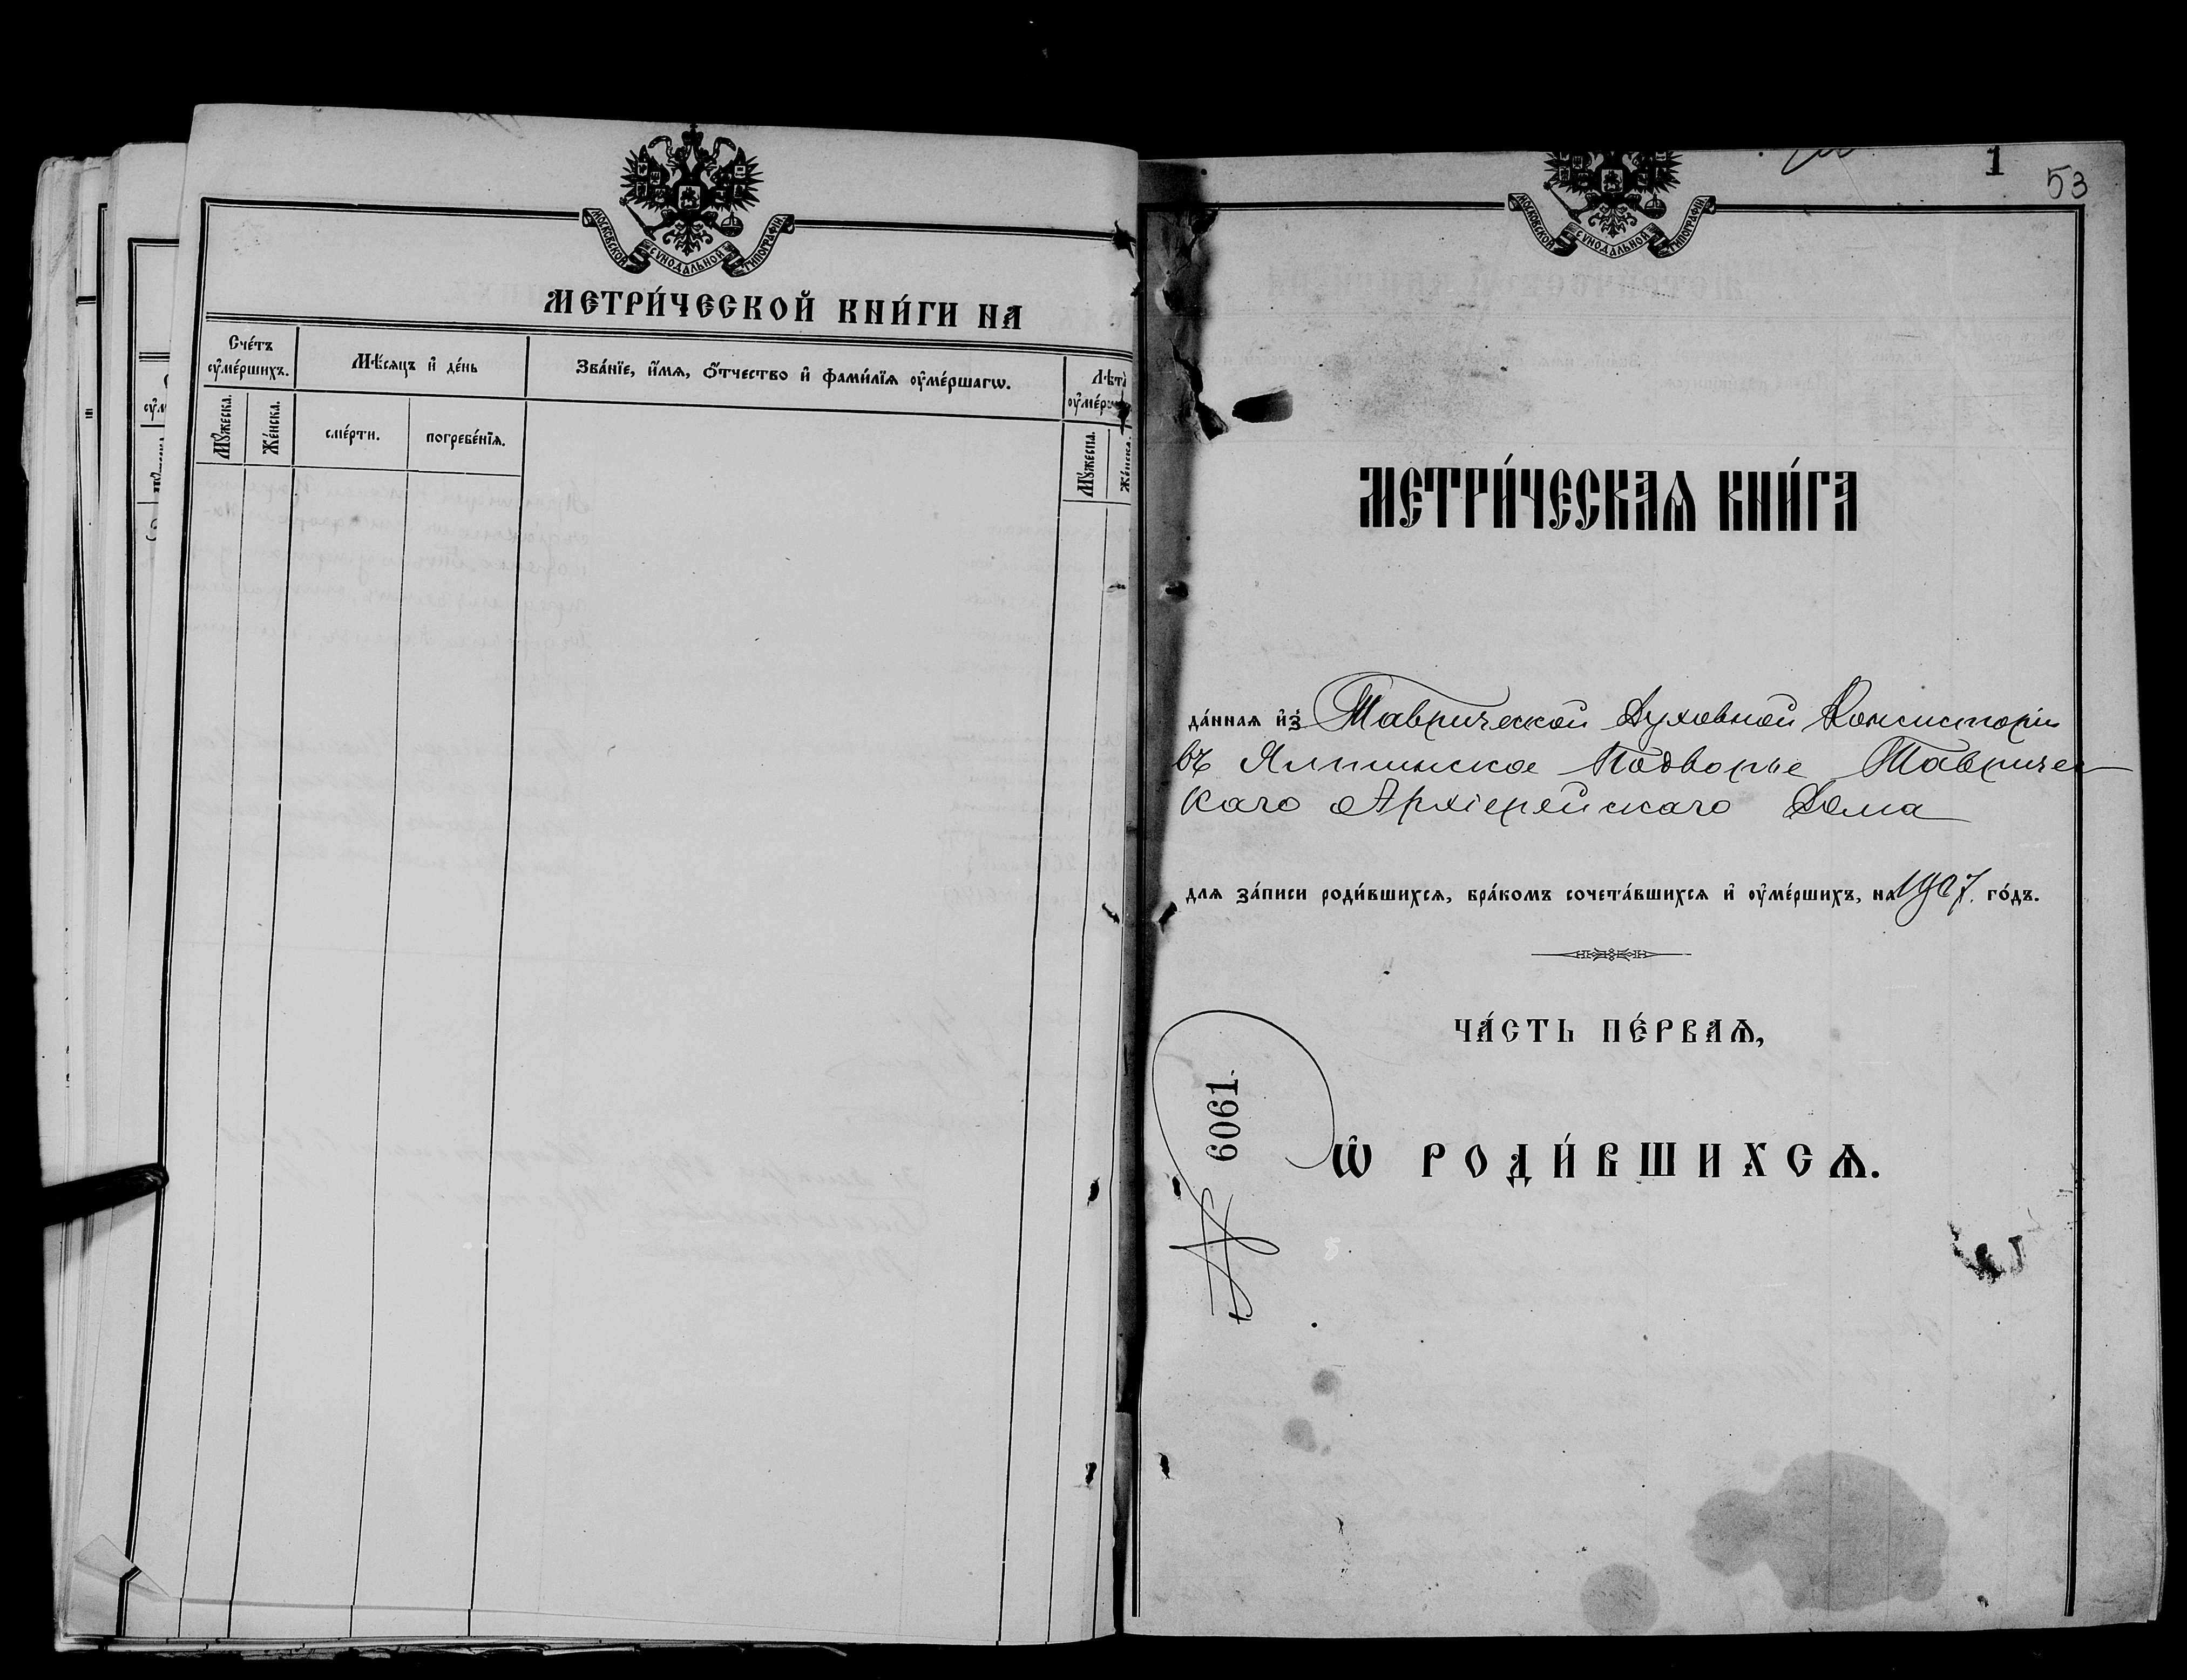 МОСКОВСКОЙ СѴНОДАЛЬНОЙ ТИПОГРАФІИ
МЕТРИ́ЧЕСКОЙ КНИ́ГИ НА
Сче́тъ ᲂу҆ме́ршихъ.
Мѣ́сяцъ и҆ де́нь
Зва́нїе, и҆́мѧ, ѻ҆́тчество и҆ фами́лїѧ ᲂу҆ме́ршагѡ.
Мꙋ́жеска.
Же́нска.
сме́рти.
погребе́нїѧ.
Мꙋ́жеска.
Же́нска.
МОСКОВСКОЙ СѴНОДАЛЬНОЙ ТИПОГРАФІИ
1
53
МЕТРИ́ЧЕСКАѦ КНИ́ГА
да́ннаѧ и҆з̾ Таврической Духовной Консисторіи
въ Ялтинское Подворье Тавричес-
каго Архіерейскаго Дома
для за́писи роди́вшихсѧ, бра́комъ сочета́вшихсѧ и҆ ᲂу҆ме́ршихъ, на 1907. го́дъ.
ЧА́СТЬ ПЕ́РВАѦ,
Ѡ҆ РОДИ́ВШИХСѦ.
№ 6061.